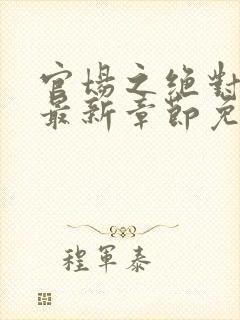 官場之絕對
最新章節免
程軍泰